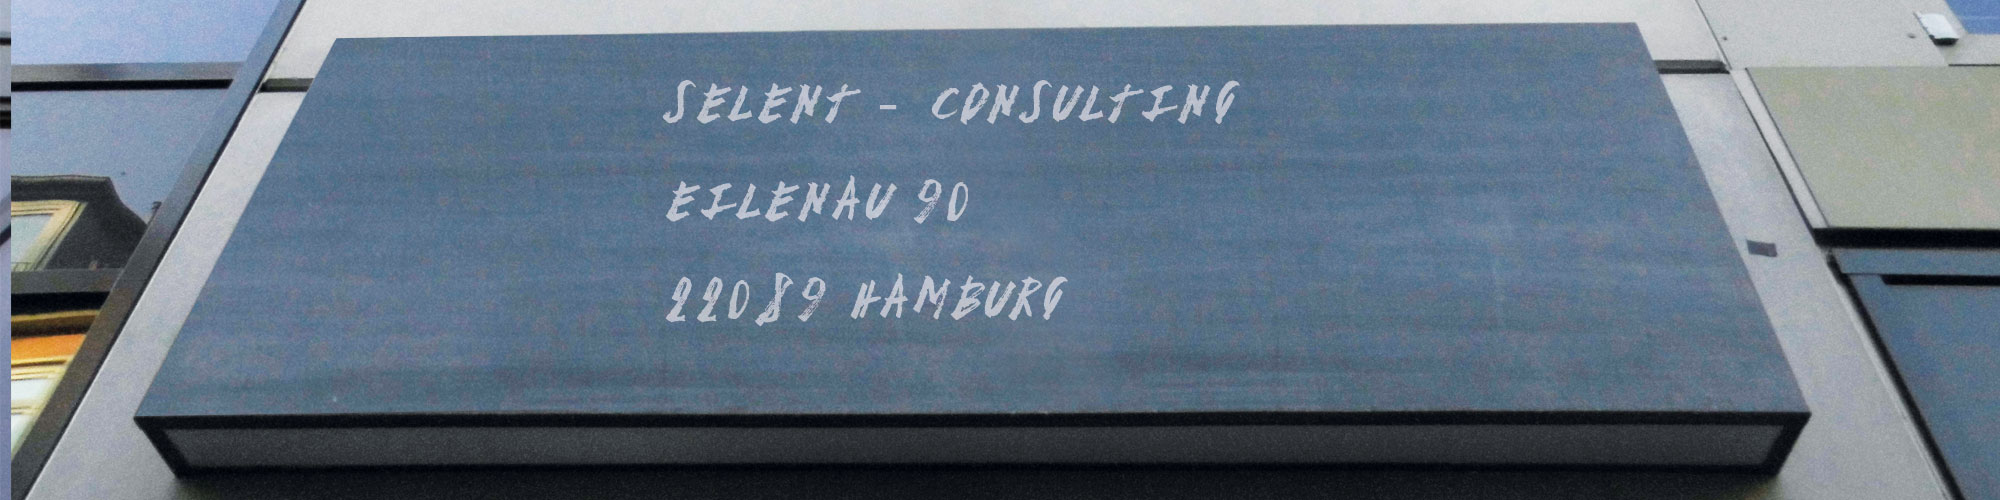 SELENT - CONSULTING
EILENAU 90
22089 HAMBURG